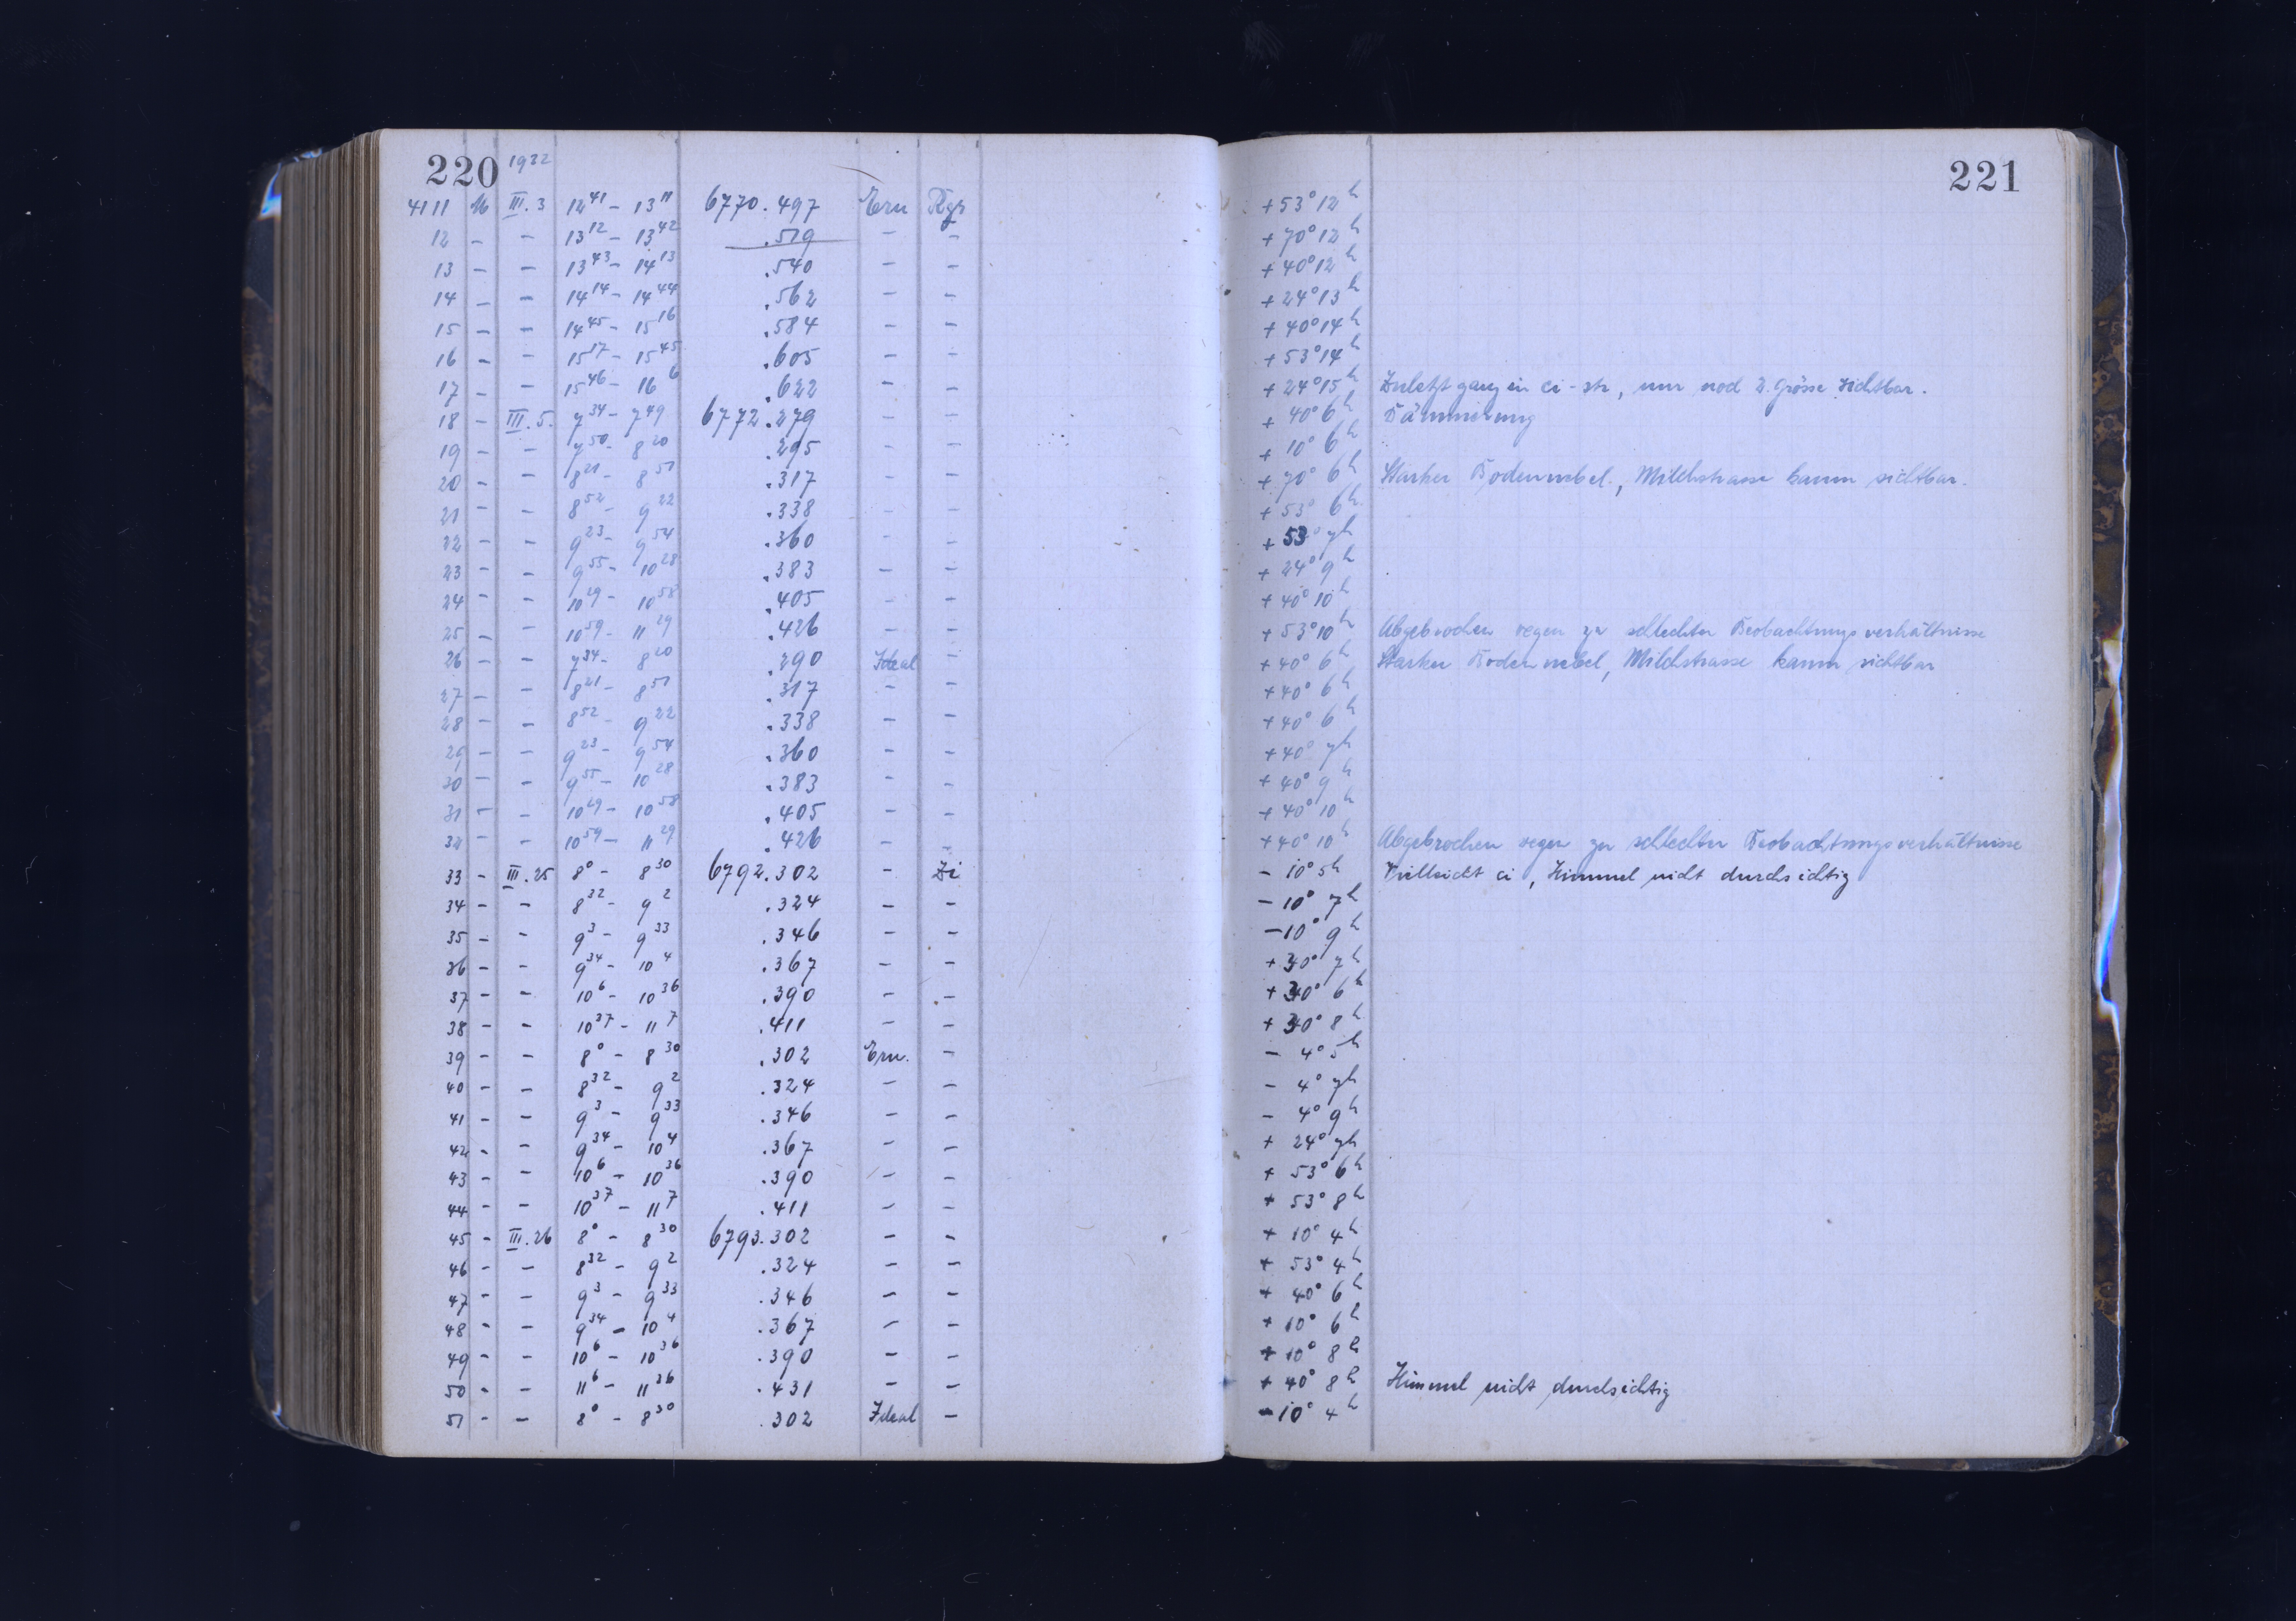 220 1932 221
4111 16 III.3 12 41 – 13 11 6770.497 Ern + 53° 12 h
12 – – 13 12 – 13 42 .519 – – + 70° 12 h
13 – – 13 43 – 14 13 .540 – – + 40° 12 h
14 – – 14 14 – 14 44 .562 – – + 24° 13 h
15 – – 14 45 – 15 16 .584 – – + 40° 14 h
16 – – 15 17 – 15 45 .605 – – + 53° 14 h
17 – – 15 46 – 16 6 .622 – – + 24° 15 h Zuletzt ganz in ci-str, nur noch 2. Grösse sichtbar.
18 – III.5. 7 34 – 7 49 6772.279 – – + 40° 6 h Dämmerung
19 – – 7 50 – 8 20 .295 – – + 10° 6 h
20 – – 8 21 – 8 51 .317 – – + 70° 6 h Starker Bodennebel, Milchstrasse kaum sichtbar.
21 – – 8 52 – 9 22 .338 – – + 53° 6 h
22 – – 9 23 – 9 54 .360 – – + 53° 7 h
23 – – 9 55 – 10 28 .383 – – + 24° 9 h
24 – – 10 29 – 10 58 .405 – – + 40° 10 h
25 – – 10 59 – 11 29 .426 – – + 53° 10 h Abgebrochen wegen zu schlechter Beobachtungsverhältnisse
26 – – 7 34 – 8 20 .290 Ideal – + 40° 6 h Starker Bodennebel, Milchstrasse kaum sichtbar
27 – – 8 21 – 8 51 .317 – – + 40° 6 h
28 – – 8 52 – 9 22 .338 – – + 40° 6 h
29 – – 9 23 – 9 54 .360 – – + 40° 7 h
30 – – 9 55 – 10 28 .383 – – + 40° 9 h
31 – – 10 29 – 10 58 .405 – – + 40° 10 h
32 – – 10 59 – 11 29 .426 – – + 40° 10 h Abgebrochen wegen zu schlechter Beobachtungsverhältnisse
33 – III.25 8 0 – 8 30 6792.302 – Zi – 10° 5 h Vielleicht ci, Himmel nicht durchsichtig
34 – – 8 32 – 9 2 .324 – – – 10° 7 h
35 – – 9 3 – 9 33 .346 – – – 10° 9 h
36 – – 9 34 – 10 4 .367 – – + 30° 7 h
37 – – 10 6 – 10 36 .390 – – + 30° 6 h
38 – – 10 37 – 11 7 .411 – – + 30° 8 h
39 – – 8 0 – 8 30 .302 Ern. – – 4° 5 h
40 – – 8 32 – 9 2 .324 – – – 4° 7 h
41 – – 9 3 – 9 33 .346 – – – 4° 9 h
42 – – 9 34 – 10 4 .367 – – + 24° 7 h
43 – – 10 6 – 10 36 .390 – – + 53° 6 h
44 – – 10 37 – 11 7 .411 – – + 53° 8 h
45 – III.26 8 0 – 8 30 6793.302 – – + 10° 4 h
46 – – 8 32 – 9 2 .324 – – + 53° 4 h
47 – – 9 3 – 9 33 .346 – – + 40° 6 h
48 – – 9 34 – 10 4 .367 – – + 10° 6 h
49 – – 10 6 – 10 36 .390 – – + 10° 8 h
50 – – 11 6 – 11 36 .431 – – + 40° 8 h Himmel nicht durchsichtig
51 – – 8 0 – 8 30 .302 Ideal – – 10° 4 h